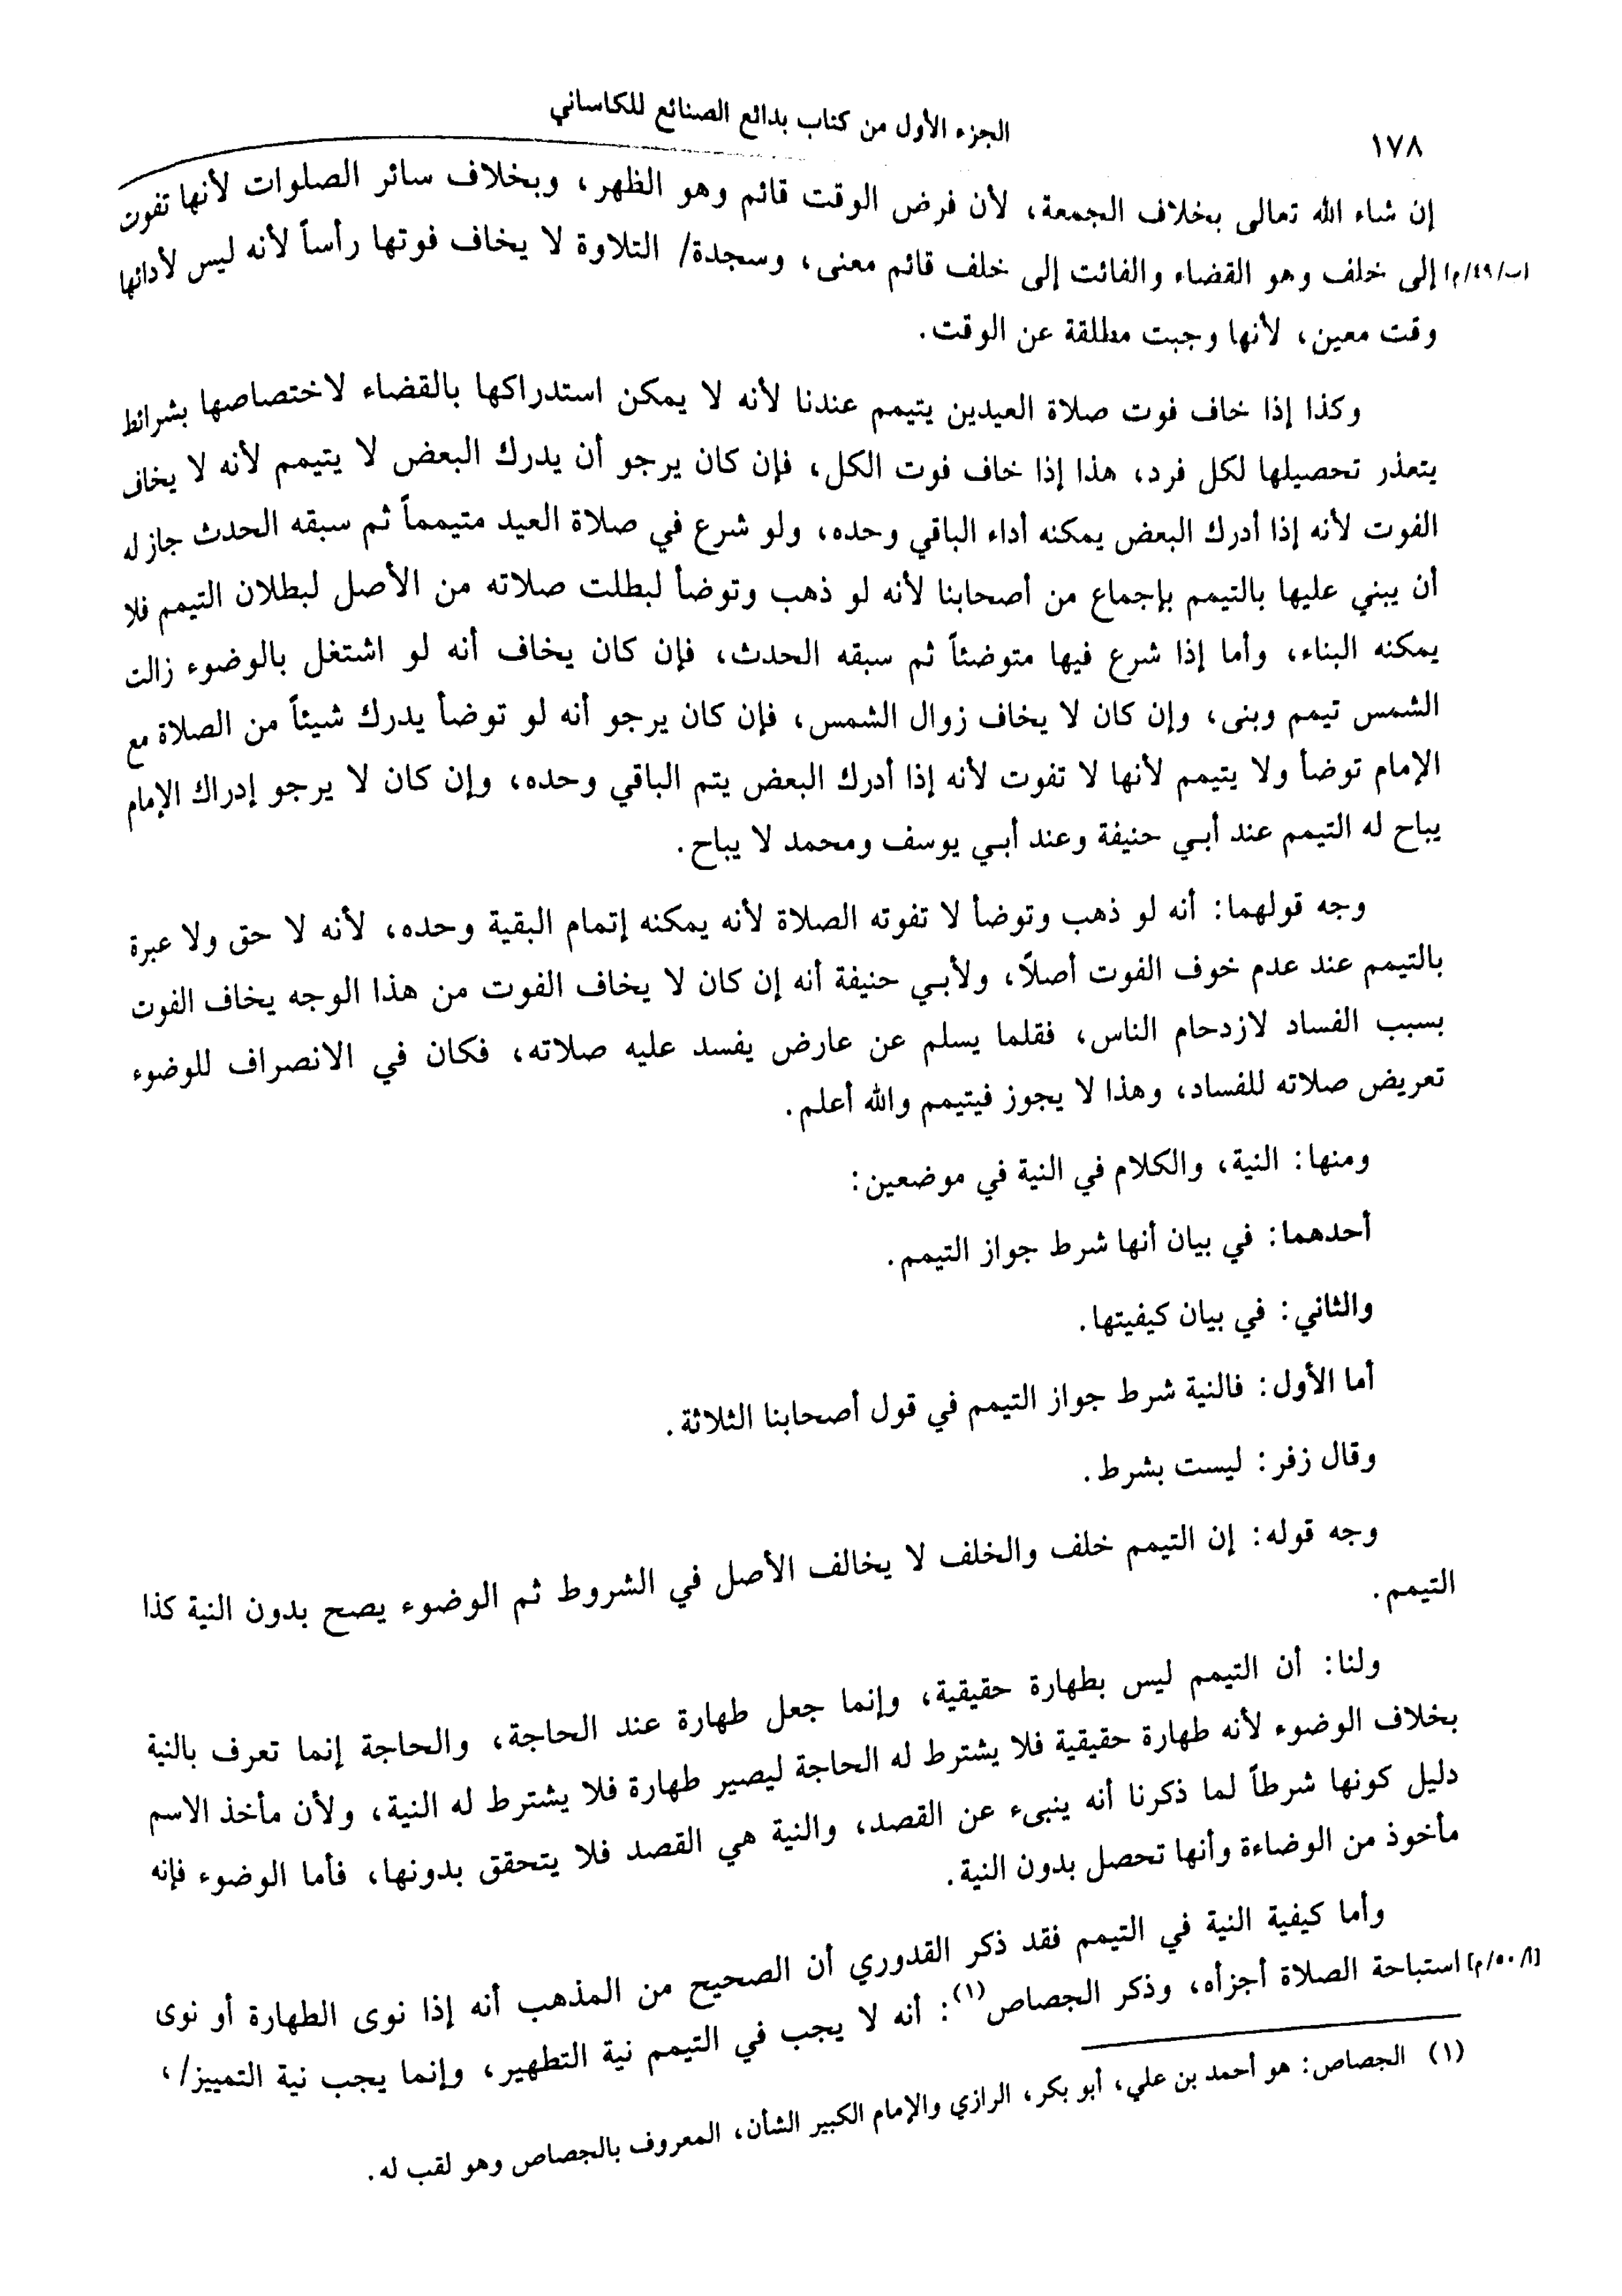 ١٧٨
الجزء الأول من كتاب بدائع الصنائع للكاساني
إن شاء الله تعالى بخلاف الجمعة، لأن فرض الوقت قائم وهو الظهر، وبخلاف سائر الصلوات لأنها تفوت
[ب/٤٩/م] إلى خلف وهو القضاء والفائت إلى خلف قائم معنى، وسجدة/ التلاوة لا يخاف فوتها رأساً لأنه ليس لأدائها
وقت معين، لأنها وجبت مطلقة عن الوقت.
وكذا إذا خاف فوت صلاة العيدين يتيمم عندنا لأنه لا يمكن استدراكها بالقضاء لاختصاصها بشرائط
يتعذر تحصيلها لكل فرد، هذا إذا خاف فوت الكل، فإن كان يرجو أن يدرك البعض لا يتيمم لأنه لا يخاف
الفوت لأنه إذا أدرك البعض يمكنه أداء الباقي وحده، ولو شرع في صلاة العيد متيمماً ثم سبقه الحدث جاز له
أن يبني عليها بالتيمم بإجماع من أصحابنا لأنه لو ذهب وتوضأ لبطلت صلاته من الأصل لبطلان التيمم فلا
يمكنه البناء، وأما إذا شرع فيها متوضئاً ثم سبقه الحدث، فإن كان يخاف أنه لو اشتغل بالوضوء زالت
الشمس تيمم وبنى، وإن كان لا يخاف زوال الشمس، فإن كان يرجو أنه لو توضأ يدرك شيئاً من الصلاة مع
الإمام توضأ ولا يتيمم لأنها لا تفوت لأنه إذا أدرك البعض يتم الباقي وحده، وإن كان لا يرجو إدراك الإمام
يباح له التيمم عند أبي حنيفة وعند أبي يوسف ومحمد لا يباح.
وجه قولهما: أنه لو ذهب وتوضأ لا تفوته الصلاة لأنه يمكنه إتمام البقية وحده، لأنه لا حق ولا عبرة
بالتيمم عند عدم خوف الفوت أصلاً، ولأبي حنيفة أنه إن كان لا يخاف الفوت من هذا الوجه يخاف الفوت
بسبب الفساد لازدحام الناس، فقلما يسلم عن عارض يفسد عليه صلاته، فكان في الانصراف للوضوء
تعريض صلاته للفساد، وهذا لا يجوز فيتيمم والله أعلم.
ومنها: النية، والكلام في النية في موضعين:
أحدهما: في بيان أنها شرط جواز التيمم.
والثاني: في بيان كيفيتها.
أما الأول: فالنية شرط جواز التيمم في قول أصحابنا الثلاثة.
وقال زفر: ليست بشرط.
وجه قوله: إن التيمم خلف والخلف لا يخالف الأصل في الشروط ثم الوضوء يصح بدون النية كذا
التيمم.
ولنا: أن التيمم ليس بطهارة حقيقية، وإنما جعل طهارة عند الحاجة، والحاجة إنما تعرف بالنية
بخلاف الوضوء لأنه طهارة حقيقية فلا يشترط له الحاجة ليصير طهارة فلا يشترط له النية، ولأن مأخذ الاسم
دليل كونها شرطاً لما ذكرنا أنه ينبىء عن القصد، والنية هي القصد فلا يتحقق بدونها، فأما الوضوء فإنه
مأخوذ من الوضاءة وأنها تحصل بدون النية.
وأما كيفية النية في التيمم فقد ذكر القدوري أن الصحيح من المذهب أنه إذا نوى الطهارة أو نوى
[أ/٥٠/م] استباحة الصلاة أجزأه، وذكر الجصاص(١): أنه لا يجب في التيمم نية التطهير، وإنما يجب نية التمييز/،
(١) الجصاص: هو أحمد بن علي، أبو بكر، الرازي والإمام الكبير الشأن، المعروف بالجصاص وهو لقب له.